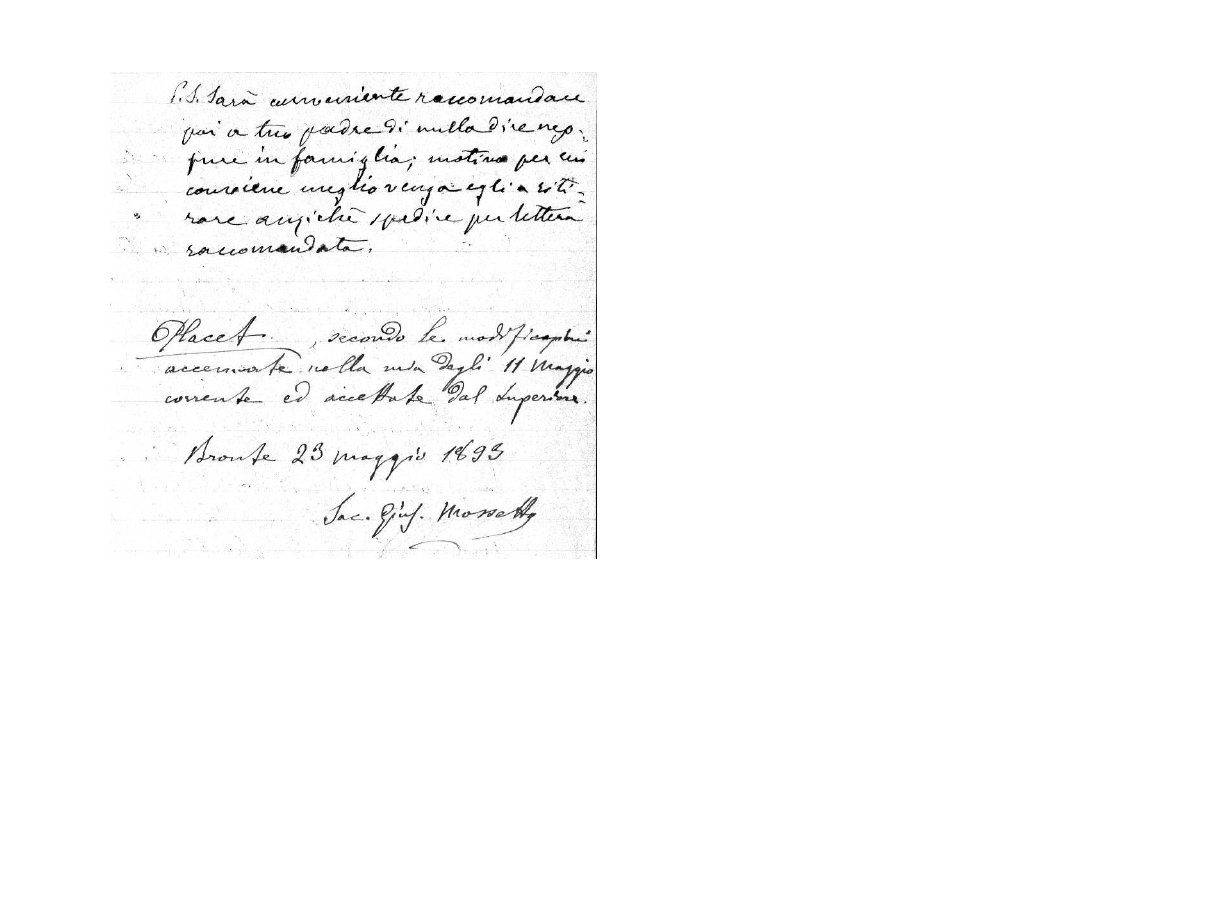 P.S. Sarà conveniente raccomandare
poi a tuo padre di nulla dire nep-
pure in famiglia; motivo per cui
conviene meglio venga egli a riti-
rare anzichè spedire per lettera
raccomandata.
Placet, secondo le modificazioni
accennate nella mia degli 11 Maggio
corrente ed accettate dal Superiore.
Bronte 23 maggio 1893
Sac. Gius. Mossetto